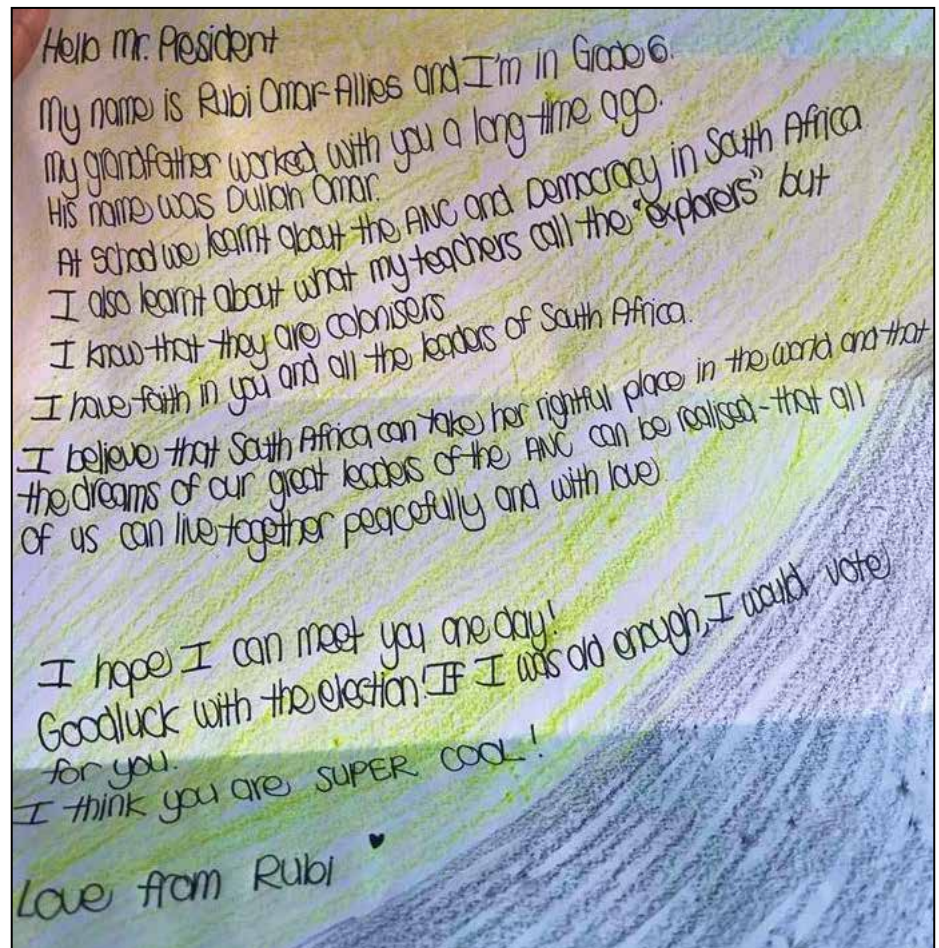 Hello Mr. President
My name is Rubi Omar-Allies and I'm in Grade 6.
My grandfather worked with you a long time ago.
His name was Dullah Omar.
At school we learnt about the ANC and Democracy in South Africa
I also learnt about what my teachers call the "explorers" but
I know that they are colonisers
I have faith in you and all the leaders of South Africa.
I believe that South Africa can take her rightful place in the world and that
the dreams of our great leaders of the ANC can be realised - that all
of us can live together peacefully and with love
I hope I can meet you one day!
Goodluck with the election! If I was old enough, I would vote
for you.
I think you are SUPER COOL!
Love from Rubi ♥